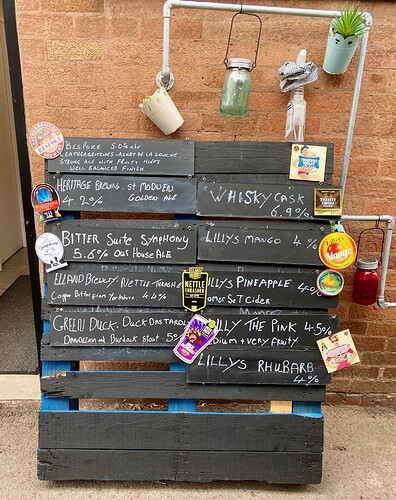 BESPOKE 5.0% abv
LEATHERBRITCHES - ABORT DE LA LOUCHE
STRONG ALE WITH FRUITY HINTS
WELL BALANCED FINISH
HERITAGE BREWING. ST MODWEN
4.2% GOLDEN ALE
WHISKY CASK
6.9%
BITTER SUITE SYMPHONY
5.6% OUR HOUSE ALE
LILLYS MANGO 4%
Mango
ELLAND BREWERY NETTLE THRASHER
Copper Bitter from Yorkshire. 4.4%
NETTLE
THRASHER
LILLYS PINEAPPLE 4%
Somerset Cider
GREEN DUCK. DUCK DASTARDLY
DANDELION and Burdock stout 5%
LILLY THE PINK 4.5%
Medium + VERY FRUITY
LILLYS RHUBARB
4%